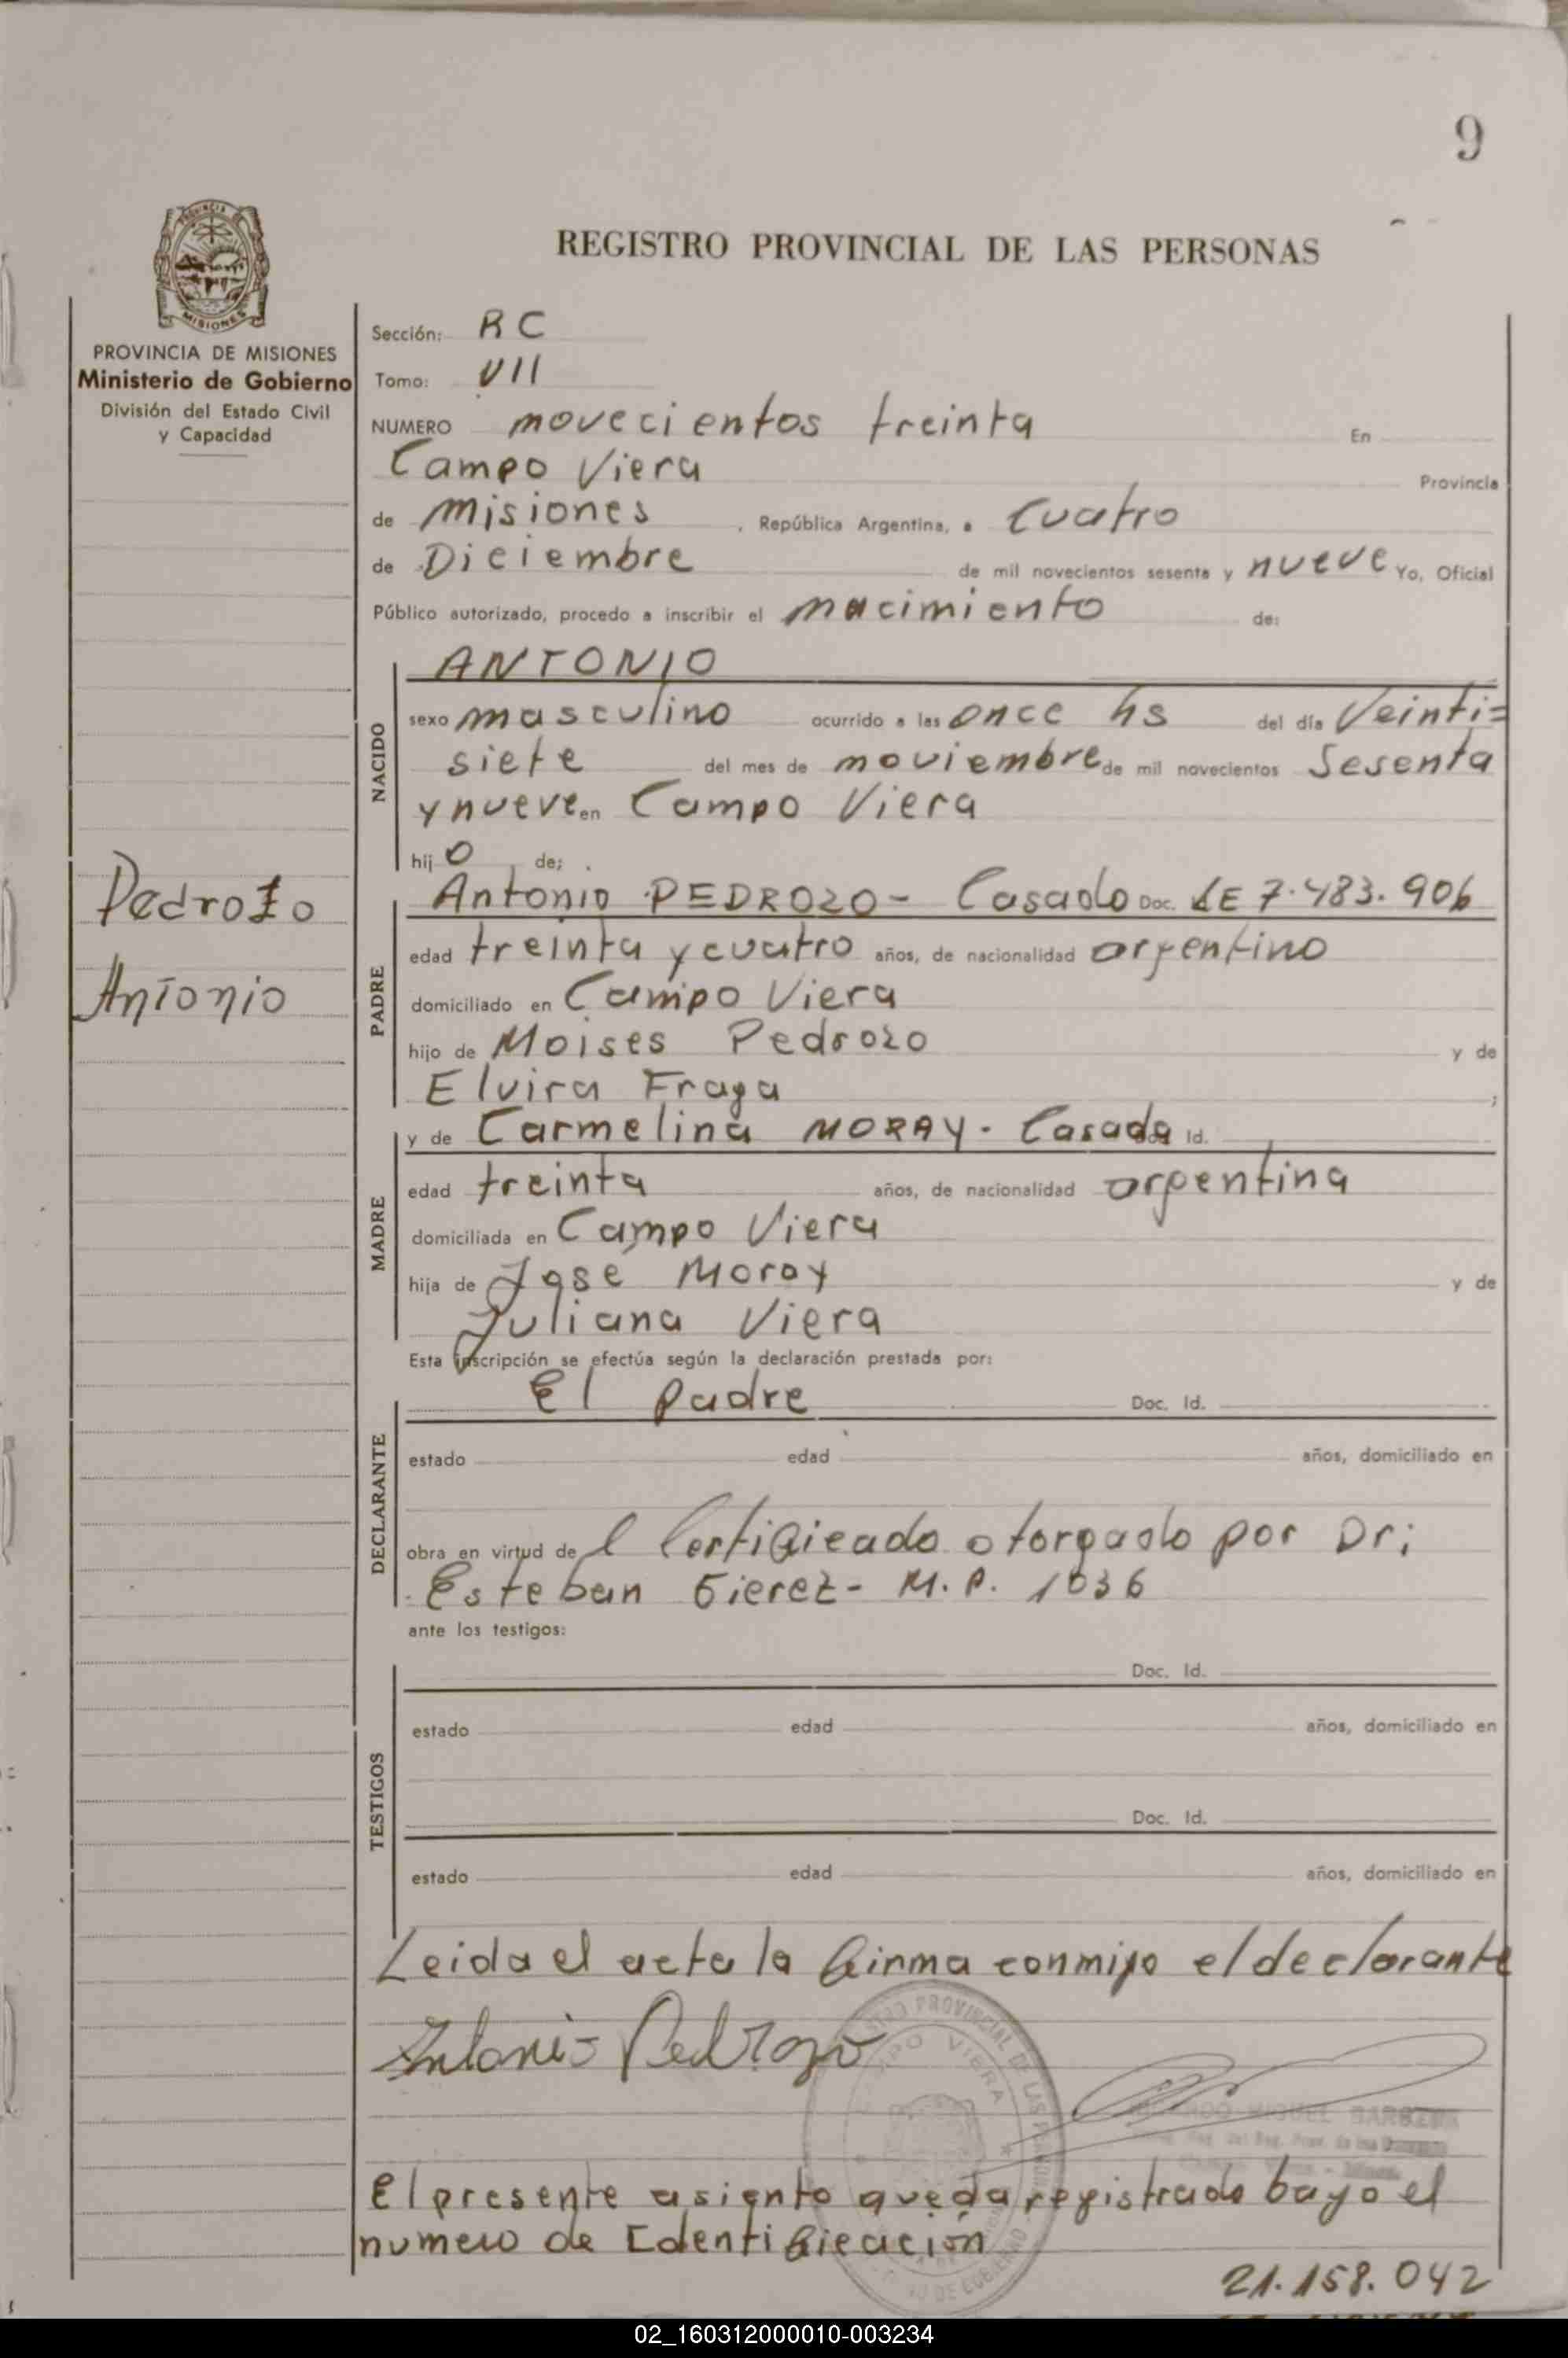 9
REGISTRO PROVINCIAL DE LAS PERSONAS
PROVINCIA DE MISIONES
Ministerio de Gobierno
División del Estado Civil
y Capacidad
Sección: RC
Tomo: VII
NUMERO novecientos treinta En
Campo Viera Provincia
de Misiones, República Argentina, a Cuatro
de Diciembre de mil novecientos sesenta y nueve Yo, Oficial
Público autorizado, procedo a inscribir el nacimiento de:
NACIDO
ANTONIO
sexo masculino ocurrido a las once hs del día Veinti=
siete del mes de noviembre de mil novecientos Sesenta
y nueve en Campo Viera
hijo de;
Pedrozo
Antonio
PADRE
Antonio PEDROZO- Casado Doc. LE 7.483.906
edad treinta y cuatro años, de nacionalidad argentino
domiciliado en Campo Viera
hijo de Moises Pedrozo y de
Elvira Fraga ;
MADRE
y de Carmelina MORAY- Casada Id.
edad treinta años, de nacionalidad argentina
domiciliada en Campo Viera
hija de José Moray y de
Juliana Viera
Esta inscripción se efectúa según la declaración prestada por:
DECLARANTE
El padre Doc. Id.
estado edad años, domiciliado en
obra en virtud del Certificado otorgado por Dr:
Esteban M.P. 1036
ante los testigos:
TESTIGOS
Doc. Id.
estado edad años, domiciliado en
Doc. Id.
estado edad años, domiciliado en
Leida el acta la firma conmigo el declarante
Antonio Pedrozo
REGISTRO PROVINCIAL DE LAS PERSONAS
CAMPO VIERA
MIGUEL
El presente asiento queda registrado bajo el
numero de Identificación
21.158.042
02_160312000010-003234